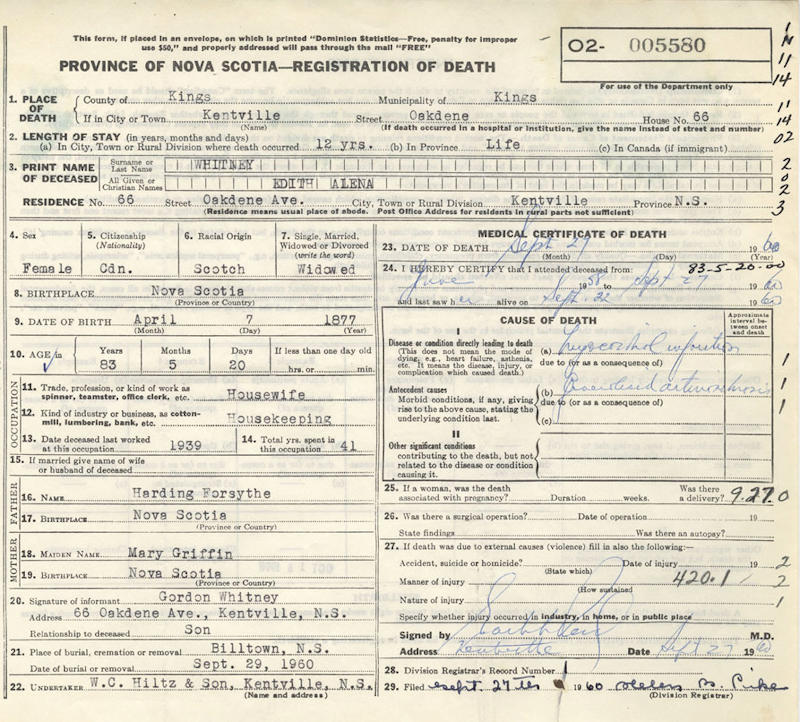 This form, if placed in an envelope, on which is printed "Dominion Statistics—Free, penalty for improper
use $50," and properly addressed will pass through the mail "FREE"
O2- 005580
PROVINCE OF NOVA SCOTIA—REGISTRATION OF DEATH
For use of the Department only
1
14
11
14
11
14
02
2
0
2
3
1. PLACE OF DEATH
County of Kings Municipality of Kings
If in City or Town Kentville Street Oakdene House No. 66
(Name) (If death occurred in a hospital or institution, give the name instead of street and number)
2. LENGTH OF STAY (in years, months and days)
(a) In City, Town or Rural Division where death occurred 12 yrs. (b) In Province Life (c) In Canada (if immigrant)
3. PRINT NAME OF DECEASED
Surname or Last Name WHITNEY
All Given or Christian Names EDITH ALENA
RESIDENCE No. 66 Street Oakdene Ave. City, Town or Rural Division Kentville Province N.S.
(Residence means usual place of abode. Post Office Address for residents in rural parts not sufficient)
4. Sex
Female
5. Citizenship
(Nationality)
Cdn.
6. Racial Origin
Scotch
7. Single, Married,
Widowed or Divorced
(write the word)
Widowed
8. BIRTHPLACE Nova Scotia
(Province or Country)
9. DATE OF BIRTH April 7 1877
(Month) (Day) (Year)
10. AGE in
Years Months Days If less than one day old
83 5 20 hrs. or min.
OCCUPATION
11. Trade, profession, or kind of work as
spinner, teamster, office clerk, etc. Housewife
12. Kind of industry or business, as cotton-
mill, lumbering, bank, etc. Housekeeping
13. Date deceased last worked
at this occupation 1939
14. Total yrs. spent in
this occupation 41
15. If married give name of wife
or husband of deceased
FATHER
16. NAME Harding Forsythe
17. BIRTHPLACE Nova Scotia
(Province or Country)
MOTHER
18. MAIDEN NAME Mary Griffin
19. BIRTHPLACE Nova Scotia
(Province or Country)
20. Signature of informant Gordon Whitney
Address 66 Oakdene Ave., Kentville, N.S.
Relationship to deceased Son
21. Place of burial, cremation or removal Billtown, N.S.
Date of burial or removal Sept. 29, 1960
22. UNDERTAKER W.C. Hiltz & Son, Kentville, N.S.
(Name and address)
MEDICAL CERTIFICATE OF DEATH
23. DATE OF DEATH Sept 27 1960
(Month) (Day) (Year)
24. I HEREBY CERTIFY that I attended deceased from: 83-5-20.00
June 1958 to Sept 27 1960
and last saw her alive on Sept. 22 1960
CAUSE OF DEATH
Approximate
interval be-
tween onset
and death
I
Disease or condition directly leading to death
(This does not mean the mode of
dying, e.g., heart failure, asthenia,
etc. It means the disease, injury, or
complication which caused death.)
(a) Myocardial infarction
due to (or as a consequence of) 1
Antecedent causes
Morbid conditions, if any, giving
rise to the above cause, stating the
underlying condition last.
(b) arteriosclerosis 1
due to (or as a consequence of) 1
(c)
II
Other significant conditions
contributing to the death, but not
related to the disease or condition
causing it.
25. If a woman, was the death
associated with pregnancy? Duration weeks. Was there
a delivery? 9.27.0
26. Was there a surgical operation? Date of operation 19
State findings Was there an autopsy?
27. If death was due to external causes (violence) fill in also the following:—
Accident, suicide or homicide? Date of injury 19 2
(State which)
Manner of injury 420.1 2
(How sustained)
Nature of injury 1
Specify whether injury occurred in industry, in home, or in public place
Signed by M.D.
Address Kentville Date Sept 27 1960
28. Division Registrar's Record Number
29. Filed Sept. 27th 1960 Helen Pike
(Division Registrar)